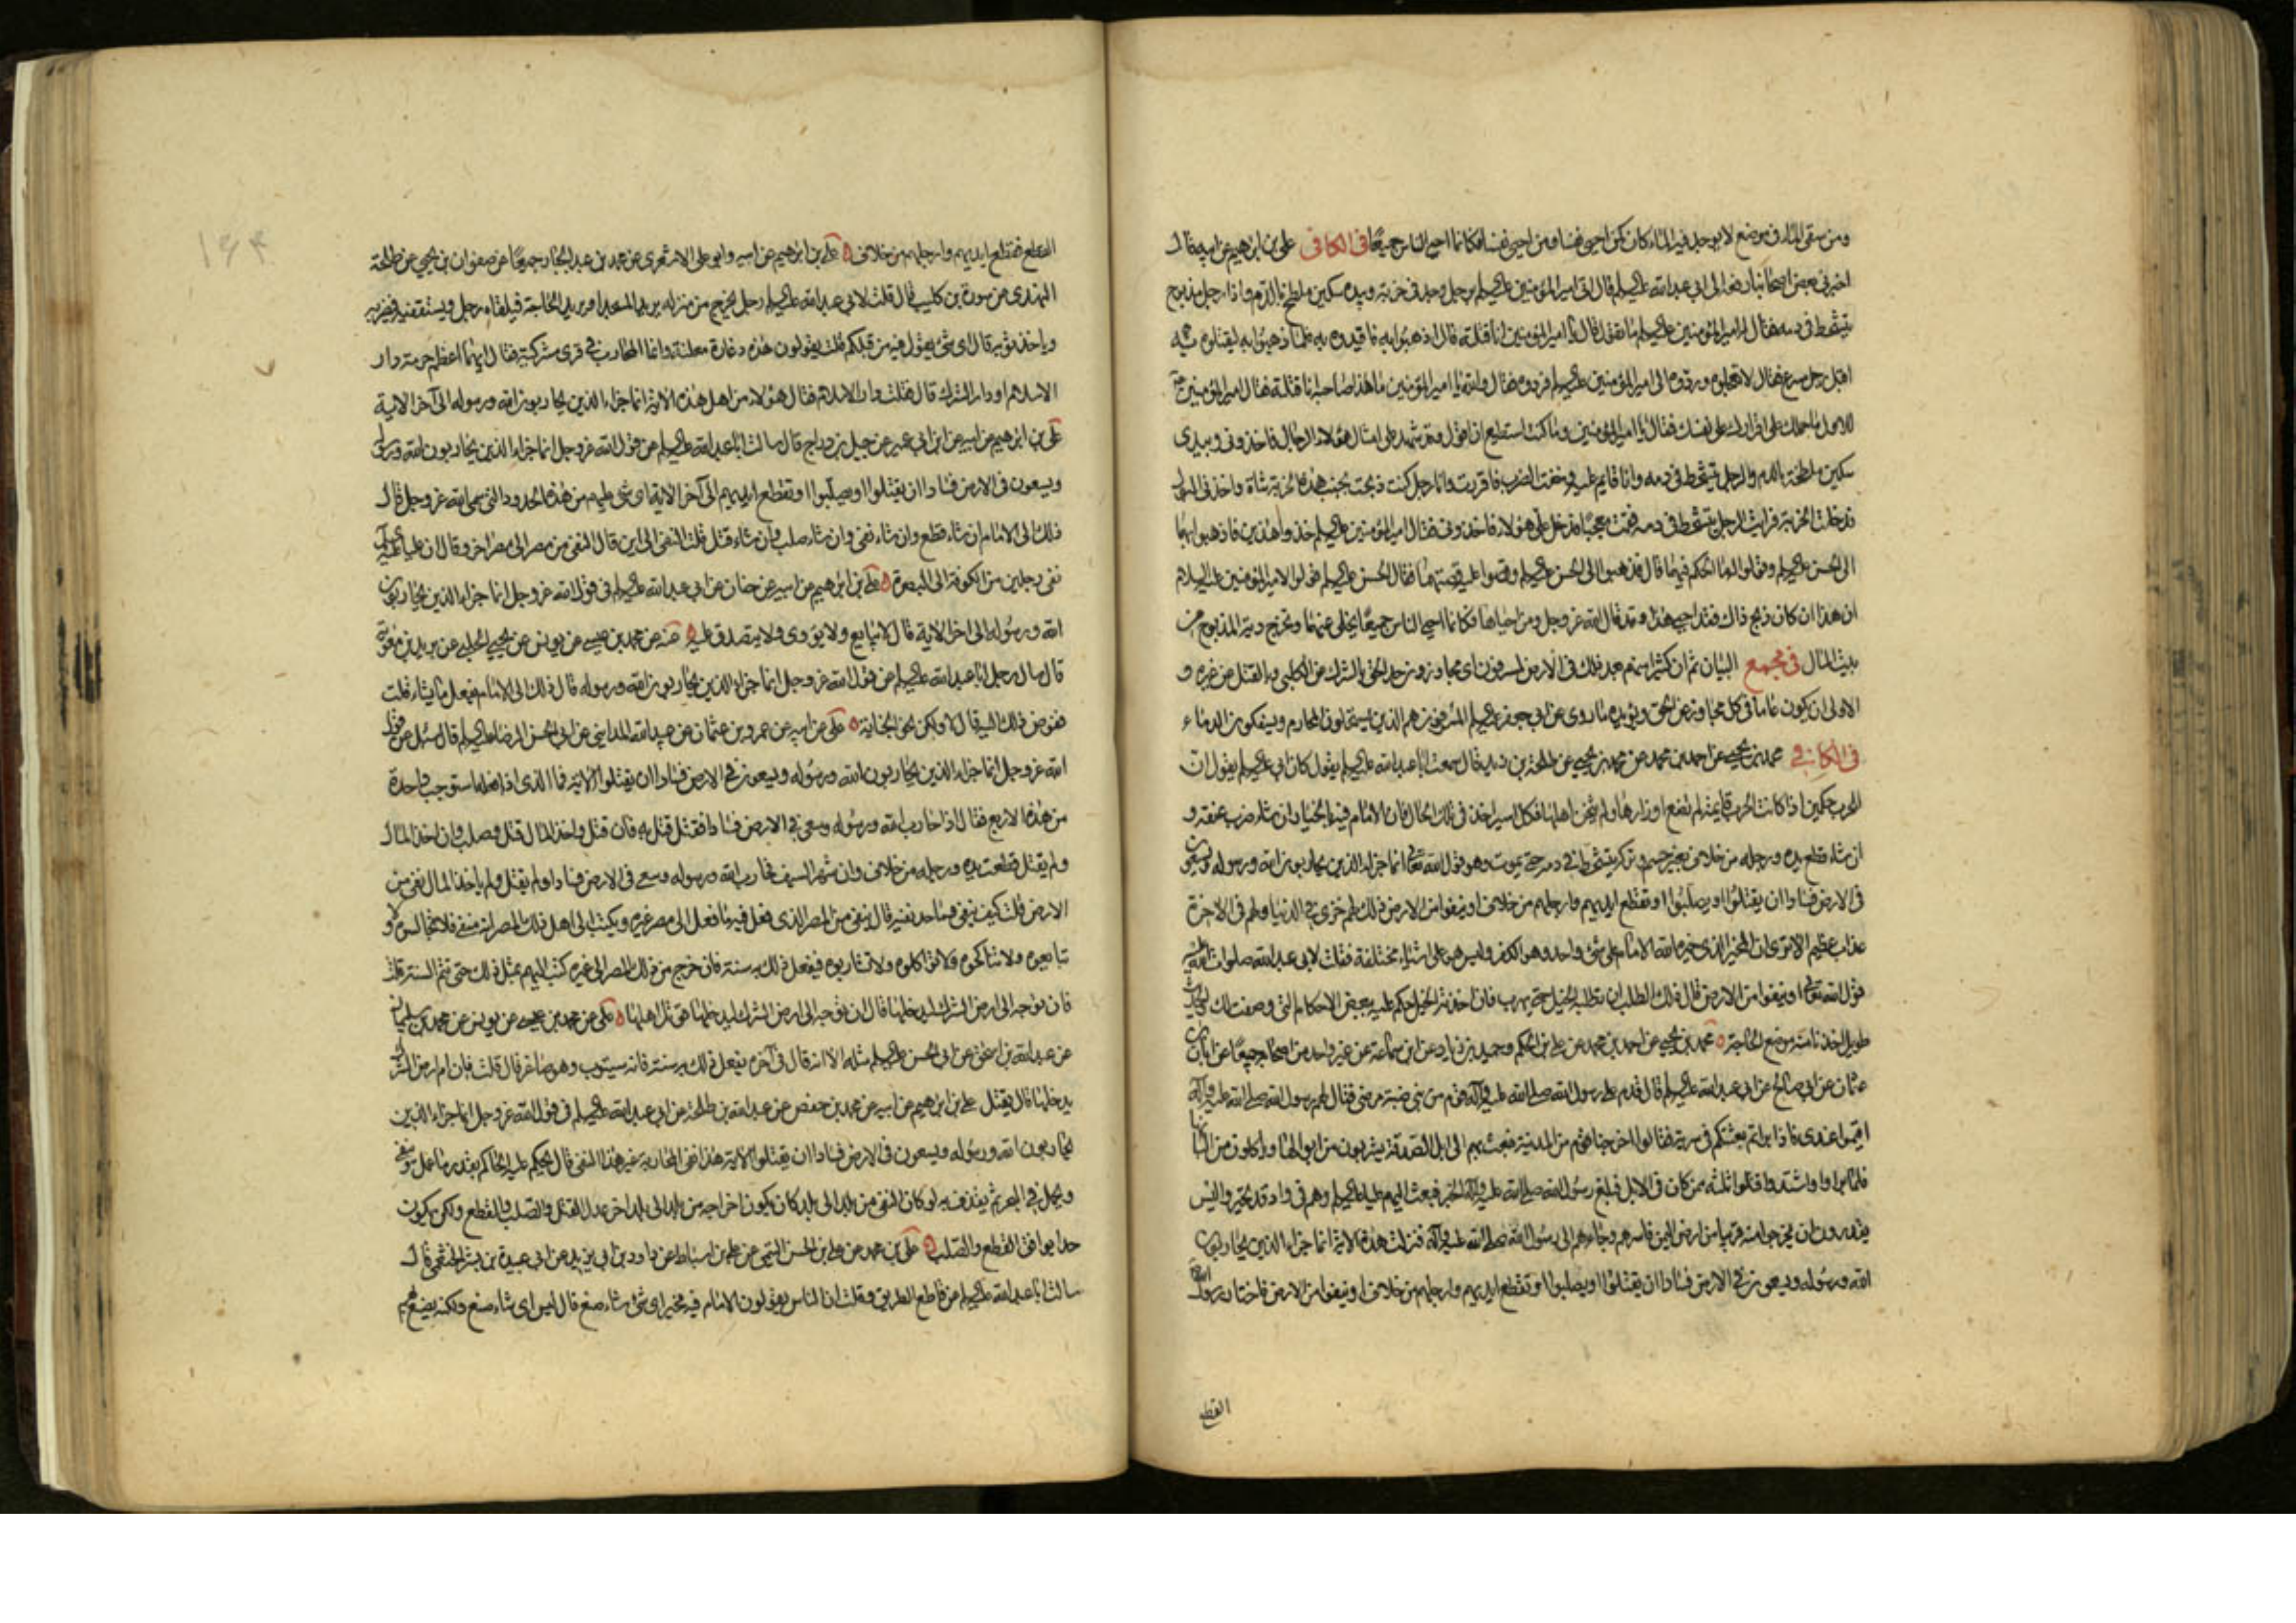 ومن سقى الماء فى موضع لا يوجد فيه الماء كان كمن احيى نفسا ومن احيى نفسا فكانما احيى الناس جميعًا فى الكافى على بن ابرهيم عن ابيه قال
اخبرنى بعض اصحابنا رفعه الى ابى عبد الله عليه السلم قال اتى امير المؤمنين عليه السلم برجل وجد فى خربة وبيده سكين ملطخ بالدم واذا رجل مذبوح
يتشحط فى دمه فقال له امير المؤمنين عليه السلم ما تقول قال يا امير المؤمنين انا قتلته قال اذهبوا به فاقيدوه به فلما ذهبوا به ليقتلوه به
اقبل رجل مسرع فقال لا تعجلوه وردوه الى امير المؤمنين عليه السلم فردوه فقال والله يا امير المؤمنين ما هذا صاحبه انا قتلته فقال امير المؤمنين
للاول ما حملك على اقرارك على نفسك فقال يا امير المؤمنين وما كنت استطيع ان اقول وقد شهد على امثال هؤلاء الرجال فاخذونى وبيدى
سكين ملطخة بالدم والرجل يتشحط فى دمه وانا قايم عليه وخفت الضرب فاقررت وانا رجل كنت ذبحت بجنب هذه الخربة شاة واخذنى البول
فدخلت الخربة فرايت الرجل يتشحط فى دمه فقمت معجبًا فدخل على هؤلاء فاخذونى فقال امير المؤمنين عليه السلم خذوا هذين فاذهبوا بهما
الى الحسن عليه السلم وقولوا له ما الحكم فيهما قال فذهبوا الى الحسن عليه السلم وقصوا عليه قصتهما فقال الحسن عليه السلم قولوا لامير المؤمنين عليه السلام
ان هذا ان كان ذبح ذاك فقد احيى هذا وقد قال الله عز وجل ومن احياها فكانما احيى الناس جميعًا يخلى عنهما وتخرج دية المذبوح من
بيت المال فى مجمع البيان ثم ان كثيرا منهم بعد ذلك فى الارض لمسرفون اى مجاوزون حد الحق بالشرك عن الكلبى وبالقتل عن غيره و
الاولى ان يكون عاما فى كل مجاوز عن الحق ويؤيده ما روى عن ابى جعفر عليه السلم المسرفون هم الذين يستحلون المحارم ويسفكون الدماء
فى الكافى محمد بن يحيى عن احمد بن محمد عن محمد بن يحيى عن طلحة بن زيد قال سمعت ابا عبد الله عليه السلم يقول كان ابى عليه السلم يقول ان
للحرب حكمين اذا كانت الحرب قايمة لم تضع اوزارها ولم يثخن اهلها فكل اسير اخذ فى تلك الحال فان الامام فيه بالخيار ان شاء ضرب عنقه و
ان شاء قطع يده ورجله من خلاف بغير حسم وتركه يتشحط فى دمه حتى يموت وهو قول الله تعالى انما جزاء الذين يحاربون الله ورسوله ويسعون
فى الارض فسادا ان يقتلوا او يصلبوا او تقطع ايديهم وارجلهم من خلاف او ينفوا من الارض ذلك لهم خزى فى الدنيا ولهم فى الاخرة
عذاب عظيم الا ترى ان المخير الذى خير الله الامام على شئ واحد وهو الكفر وليس هو على اشياء مختلفة فقلت لابى عبد الله صلوات الله عليه
قول الله تعالى او ينفوا من الارض قال ذلك الطلب ان تطلبه الخيل حتى يهرب فان اخذته الخيل حكم عليه ببعض الاحكام التى وصفت لك الحديث
طويل اخذنا منه موضع الحاجة محمد بن يحيى عن احمد بن محمد عن على بن الحكم وحميد بن زياد عن ابن سماعة عن غير واحد من اصحابه جميعًا عن ابان بن
عثمان عن ابى صالح عن ابى عبد الله عليه السلم قال قدم على رسول الله صلى الله عليه وآله قوم من بنى ضبة مرضى فقال لهم رسول الله صلى الله عليه وآله
اقيموا عندى فاذا براتم بعثتكم فى سرية فقالوا اخرجنا من المدينة فبعث بهم الى ابل الصدقة يشربون من ابوالها وياكلون من البانها
فلما براوا واشتدوا قتلوا ثلثه ممن كان فى الابل فبلغ رسول الله صلى الله عليه وآله الخبر فبعث اليهم عليا عليه السلم وهم فى واد قد تحيروا ليس
يقدرون ان يخرجوا منه قريبا من ارض اليمن فاسرهم وجاء بهم الى رسول الله صلى الله عليه وآله فنزلت هذه الاية انما جزاء الذين يحاربون
الله ورسوله ويسعون فى الارض فسادا ان يقتلوا او يصلبوا او تقطع ايديهم وارجلهم من خلاف او ينفوا من الارض فاختار رسول الله
القطع
القطع فقطع ايديهم وارجلهم من خلاف على بن ابرهيم عن ابيه وابو على الاشعرى عن محمد بن عبد الجبار جميعًا عن صفوان بن يحيى عن طلحة
النهدى عن سورة بن كليب قال قلت لابى عبد الله عليه السلم رجل يخرج من منزله يريد المسجد او يريد الحاجة فيلقاه رجل ويستقفيه فيضربه
وياخذ ثوبه قال اى شئ يقول فيه من قبلكم قلت يقولون هذه دغارة معلنة وانما المحارب فى قرى مشركية فقال ايهما اعظم حرمة دار
الاسلام او دار الشرك قال فقلت دار الاسلام فقال هؤلاء من اهل هذه الاية انما جزاء الذين يحاربون الله ورسوله الى آخر الاية
على بن ابرهيم عن ابيه عن ابن ابى عمير عن جميل بن دراج قال سالت ابا عبد الله عليه السلم عن قول الله عز وجل انما جزاء الذين يحاربون الله ورسوله
ويسعون فى الارض فسادا ان يقتلوا او يصلبوا او تقطع ايديهم الى آخر الاية اى شئ عليهم من هذه الحدود التى سمى الله عز وجل قال
ذلك الى الامام ان شاء قطع وان شاء نفى وان شاء صلب وان شاء قتل قلت النفى الى اين قال النفى من مصر الى مصر اخر وقال ان عليا عليه السلم
نفى رجلين من الكوفة الى البصرة على بن ابرهيم عن ابيه عن حنان عن ابى عبد الله عليه السلم فى قول الله عز وجل انما جزاء الذين يحاربون
الله ورسوله الى اخر الاية قال لا يبايع ولا يؤوى ولا يتصدق عليه عنه عن محمد بن عيسى عن يونس عن يحيى الحلبى عن بريد بن معوية
قال سال رجل ابا عبد الله عليه السلم عن قول الله عز وجل انما جزاء الذين يحاربون الله ورسوله قال ذلك الى الامام يفعل ما يشاء قلت
فمفوض ذلك اليه قال لا ولكن نحو الجناية على عن ابيه عن عمرو بن عثمان عن عبيد الله المداينى عن ابى الحسن الرضا عليه السلم قال سئل عن قول
الله عز وجل انما جزاء الذين يحاربون الله ورسوله ويسعون فى الارض فسادا ان يقتلوا الاية فما الذى اذا فعله استوجب واحدة
من هذه الاربع فقال اذا حارب الله ورسوله وسعى فى الارض فسادا فقتل قتل به فان قتل واخذ المال قتل وصلب وان اخذ المال
ولم يقتل قطعت يده ورجله من خلاف وان شهر السيف فحارب الله ورسوله وسعى فى الارض فسادا ولم يقتل ولم ياخذ المال نفى من
الارض قلت كيف ينفى وما حد نفيه قال ينفى من المصر الذى فعل فيه ما فعل الى مصر غيره ويكتب الى اهل ذلك المصر انه منفى فلا تجالسوه ولا
تبايعوه ولا تناكحوه ولا تواكلوه ولا تشاربوه فيفعل ذلك به سنة فان خرج من ذلك المصر الى غيره كتب اليهم بمثل ذلك حتى تتم السنة قلت
فان توجه الى ارض الشرك ليدخلها قال ان توجه الى ارض الشرك ليدخلها قوتل اهلها على عن محمد بن عيسى عن يونس عن محمد بن سليمان
عن عبد الله بن اسحق عن ابى الحسن عليه السلم مثله الا انه قال فى آخره يفعل ذلك به سنة فانه سيتوب وهو صاغر قال قلت فان ام ارض الشرك
يدخلها قال يقتل على بن ابرهيم عن ابيه عن محمد بن حفص عن عبد الله بن طلحة عن ابى عبد الله عليه السلم فى قول الله عز وجل انما جزاء الذين
يحاربون الله ورسوله ويسعون فى الارض فسادا ان يقتلوا الاية هذا نفى المحاربة غير هذا النفى قال يحكم عليه الحاكم بقدر ما عمل وينفى
ويحمل فى البحر ثم يقذف به لو كان النفى من بلد الى بلد كان يكون اخراجه من بلد الى بلد اخر عدل القتل والصلب والقطع ولكن يكون
حدا يوافق القطع والصلب على بن محمد عن على بن الحسن التيمى عن على بن اسباط عن داود بن ابى يزيد عن ابى عبيدة بن بشر الخثعمى قال
سالت ابا عبد الله عليه السلم عن قاطع الطريق وقلت ان الناس يقولون الامام فيه مخير اى شئ شاء صنع قال ليس اى شاء صنع ولكنه يصنع بهم